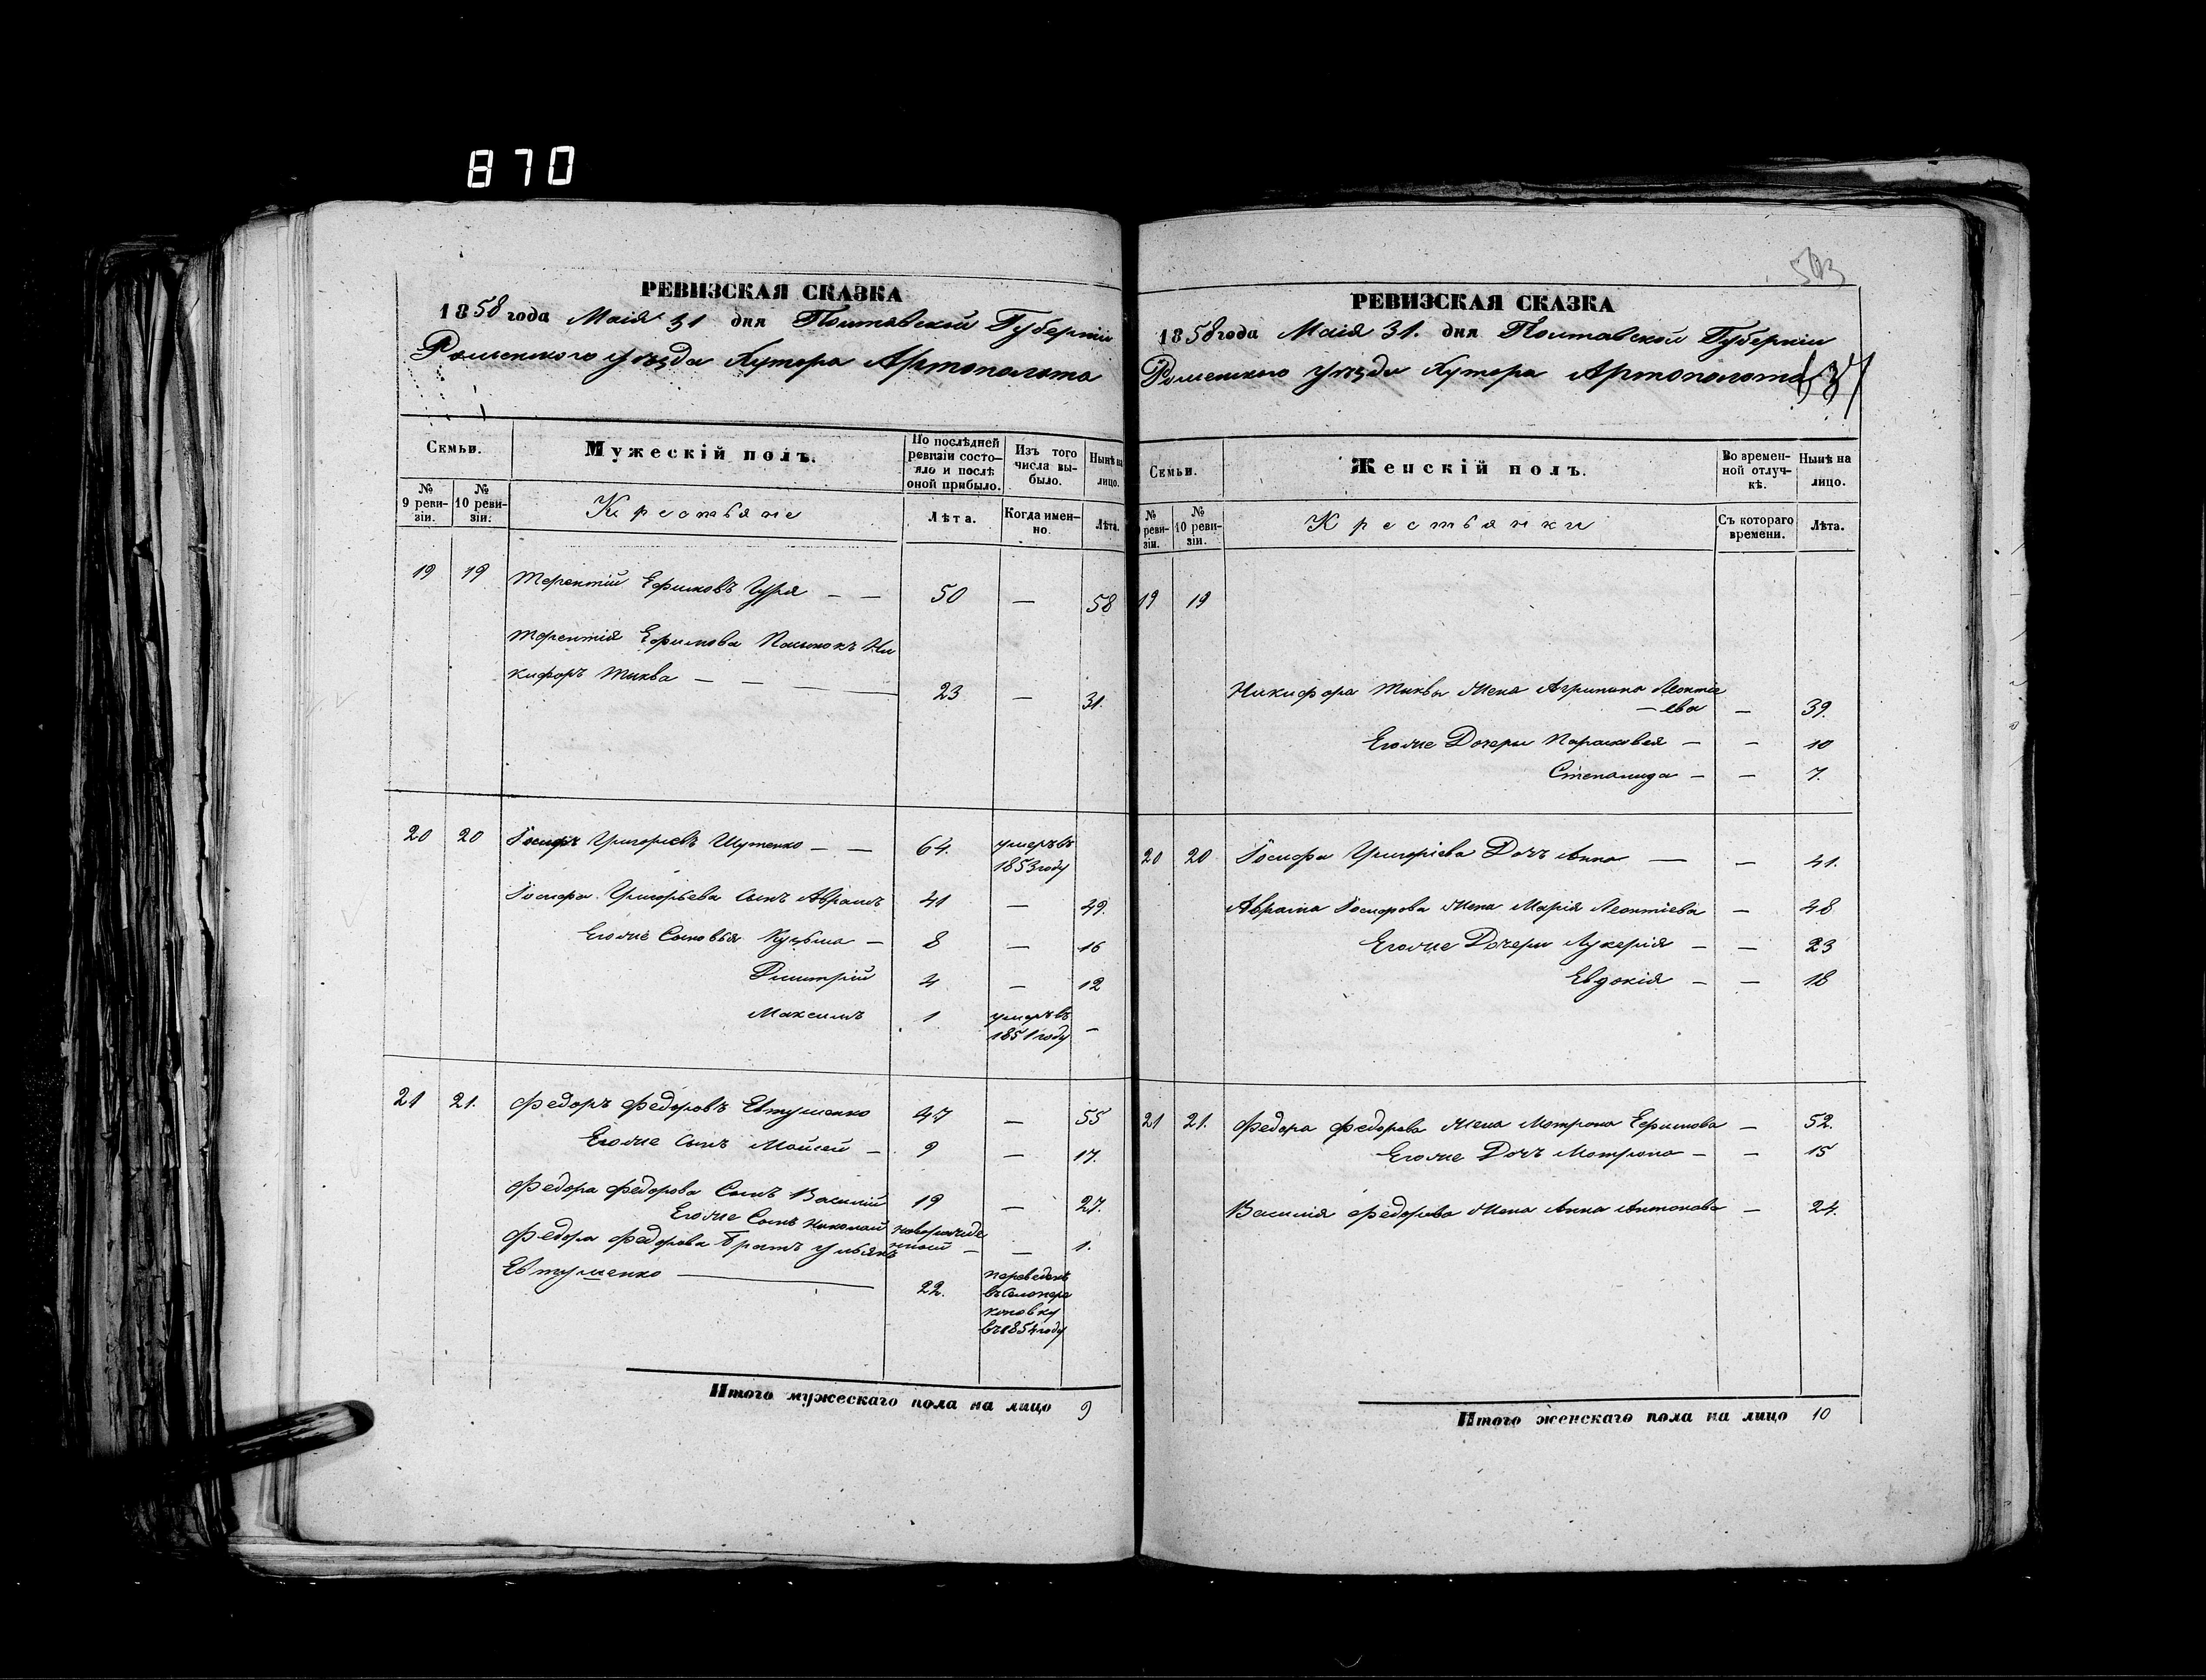 870
РЕВИЗСКАЯ СКАЗКА
1858 года Маія 31 дня Полтавской Губерніи
Роменского уѣзда Хутора Артополота
Семьи.
Мужескій полъ.
По послѣдней ревизіи состояло и послѣ оной прибыло.
Изъ того числа выбыло.
Нынѣ на лицо.
№ 9 ревизіи.
№ 10 ревизіи.
Крестьяне
Лѣта.
Когда именно.
Лѣта.
19 19 Терентій Ефимовъ Цуря — — 50 — 58
Терентія Ефимова Пасынокъ Ни
кифоръ Тиква — — — — 23 — 31.
20 20 Іосифъ Григорьевъ Шутенко — — 64. умеръ въ
1853 году
Іосифа Григорьева сынъ Аврамъ 41 — 49.
Егоже Сыновья Кузьма — 8 — 16
Димитрій 4 — 12
Максимъ 1 умеръ въ
1851 году —
21 21. Федоръ Федоровъ Евтушенко 47 — 55
Егоже сынъ Мойсей — 9 — 17.
Федора Федорова Сынъ Василій 19 — 27.
Егоже Сынъ Николай новорожде
нный — — 1.
Федора Федорова братъ Ульянъ
Евтушенко — 22. переведенъ
въ
въ 1854 году
Итого мужескаго пола на лицо 9
593
РЕВИЗСКАЯ СКАЗКА
1858 года Маія 31. дня Полтавской Губерніи
Роменского уѣзда Хутора Артополота
Семьи.
Женскій полъ.
Во временной отлучкѣ.
Нынѣ на лицо.
№ ревизіи.
№ 10 ревизіи.
Крестьянки
Съ котораго времени.
Лѣта.
19 19
Никифора Тиквы Жена Агрипина Леонтіе
— ева — 39.
Егоже Дочери Парасковея — — 10
Степанида — — 7.
20 20 Іосифа Григоріева Дочь Анна — — 41.
Аврама Іосифова Жена Марія Леонтіева — 48
Егоже Дочери Лукерія — — 23
Евдокія — — 18
21 21. Федора Федорова Жена Мотрона Ефимова — 52.
Егоже Дочь Мотрона — — 15
Василія Федорова Жена Анна Антонова — 24.
Итого женскаго пола на лицо 10